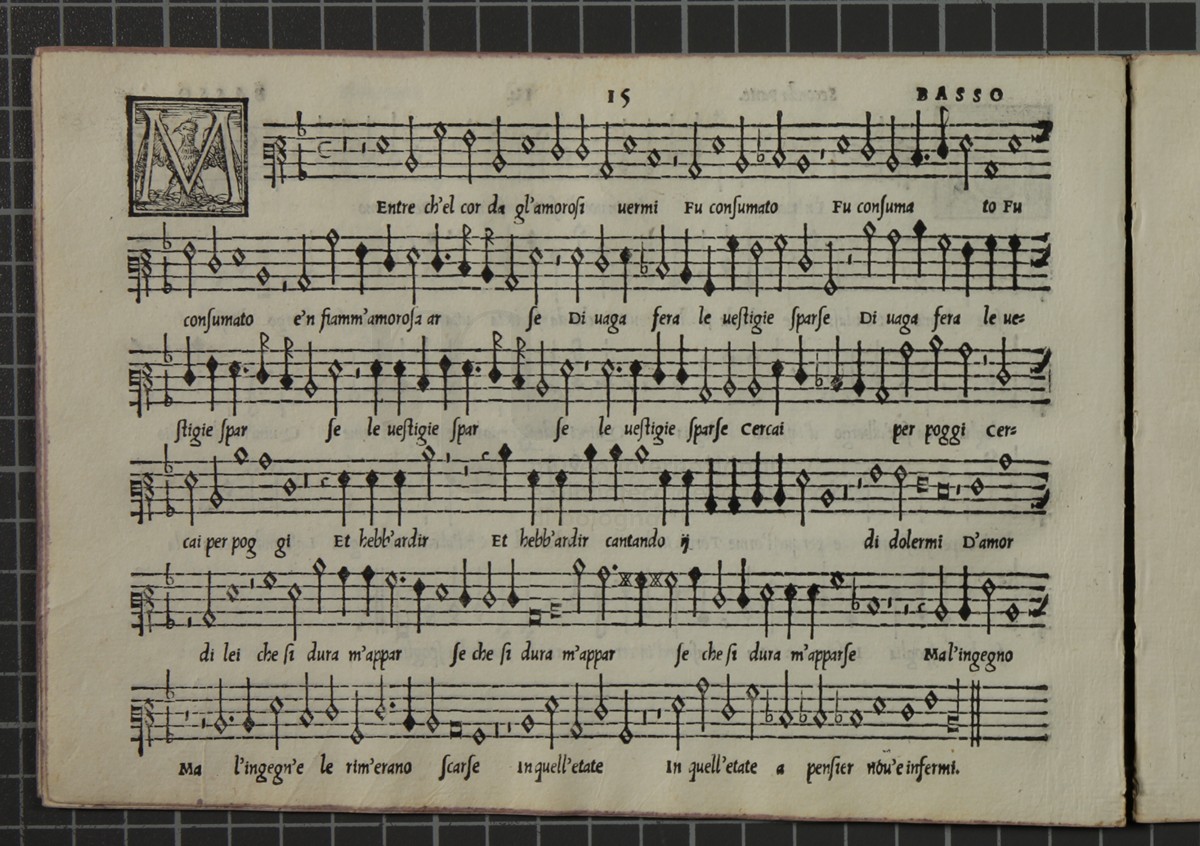 15 BASSO
MEntre ch'el cor da gl'amorosi uermi Fu consumato Fu consuma to Fu
consumato e'n fiamm'amorosa ar se Di uaga fera le uestigie sparse Di uaga fera le ue=
stigie spar se le uestigie spar se le uestigie sparse Cercai per poggi Cer=
cai per pog gi Et hebb'ardir Et hebb'ardir cantando ij di dolermi D'amor
di lei che si dura m'appar se che si dura m'appar se che si dura m'apparse Mal'ingegno
Ma l'ingegn'e le rim'erano scarse In quell'etate In quell'etate a pensier nōu'e infermi.